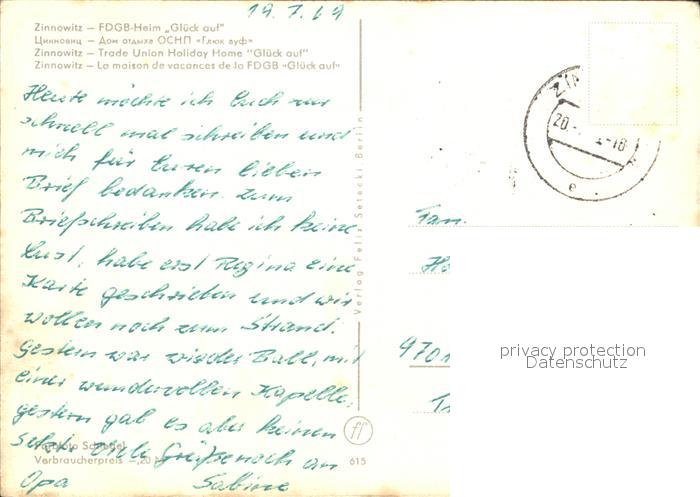 19.7.69
Zinnowitz – FDGB-Heim „Glück auf"
Цинновиц – Дом отдыха ОСНП «Глюк ауф»
Zinnowitz – Trade Union Holiday Home "Glück auf"
Zinnowitz – La maison de vacances de la FDGB «Glück auf»
Heute möchte ich Euch nur
schnell mal schreiben und
mich für Euren lieben
Brief bedanken. zum
Briefschreiben habe ich keine
Lust, habe erst Regina eine
Karte geschrieben und wir
wollen noch zum Strand.
Gestern war wieder Ball, mit
einer wundervollen Kapelle,
gestern gab es aber keinen
Sekt. Viele Grüße noch an
Opa Sabine
Verbraucherpreis –,20
615
Verlag Felix Setecki Berlin
ff
20.
-18
e
Fam.
Ho
9701
privacy protection
Datenschutz